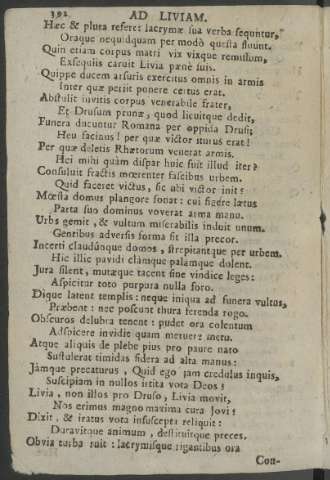 392 AD LIVIAM.
Hæc & plura referet lacrymæ sua verba sequntur,
Oraque nequidquam per modò questa fluunt.
Quin etiam corpus matri vix vixque remissum,
Exsequiis caruit Livia pænè suis.
Quippe ducem arsuris exercitus omnis in armis
Inter quæ periit ponere certus erat.
Abstulit invitis corpus venerabile frater,
Et Drusum prunæ, quod licuitque dedit,
Funera ducuntur Romana per oppida Drusi;
Heu facinus! per quæ victor iturus erat!
Per quæ deletis Rhætorum venerat armis.
Hei mihi quàm dispar huic fuit illud iter?
Consuluit fractis mœrenter fascibus urbem.
Quid faceret victus, sic ubi victor init?
Mœsta domus plangore sonat: cui figere lætus
Parta suo dominus voverat arma manu.
Urbs gemit, & vultum miserabilis induit unum.
Gentibus adversis forma sit illa precor.
Incerti claudúnque domos, strepitantque per urbem.
Hic illic pavidi clàmque palàmque dolent.
Jura silent, mutæque tacent sine vindice leges:
Aspicitur toto purpura nulla foro.
Dique latent templis: neque iniqua ad funera vultus,
Præbent: nec poscunt thura ferenda rogo.
Obscuros delubra tenent: pudet ora colentum
Adspicere invidiæ quam meruere metu.
Atque aliquis de plebe pius pro paure nato
Sustulerat timidas sidera ad alta manus:
Jàmque precaturus, Quid ego jam credulus inquis,
Suscipiam in nullos irrita vota Deos?
Livia, non illos pro Druso, Livia movit,
Nos erimus magno maxima cura Jovi?
Dixit, & iratus vota insuscepta reliquit:
Duravitque animum, destituitque preces.
Obvia turba ruit: lacrymisque rigantibus ora
Con-